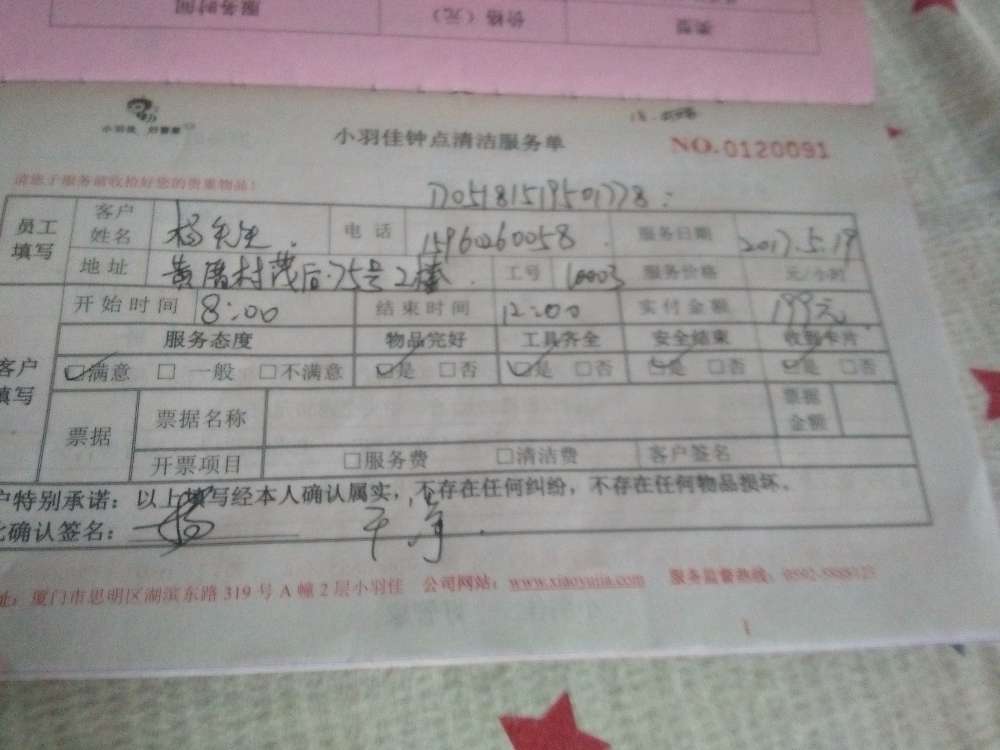 服务时间 价格（元） 类型
小羽佳 好管家
小羽佳钟点清洁服务单
NO.0120091
请您于服务前收检好您的贵重物品！
1705181519501778：
员工填写 客户姓名 杨先生 电话 15960260058 服务日期 2017.5.19
地址 黄厝村茂后75号2楼 工号 10003 服务价格 元/小时
开始时间 8:00 结束时间 12:00 实付金额 199元
客户填写 服务态度 物品完好 工具齐全 安全结束 收到卡片
☑满意 □一般 □不满意 ☑是 □否 ☑是 □否 ☑是 □否 ☑是 □否
票据 票据名称 票据金额
开票项目 □服务费 □清洁费 客户签名
户特别承诺：以上填写经本人确认属实，不存在任何纠纷，不存在任何物品损坏。
此确认签名： 杨 干净
址：厦门市思明区湖滨东路319号A幢2层小羽佳 公司网站：www.xiaoyujia.com 服务监督热线：0592-5888123